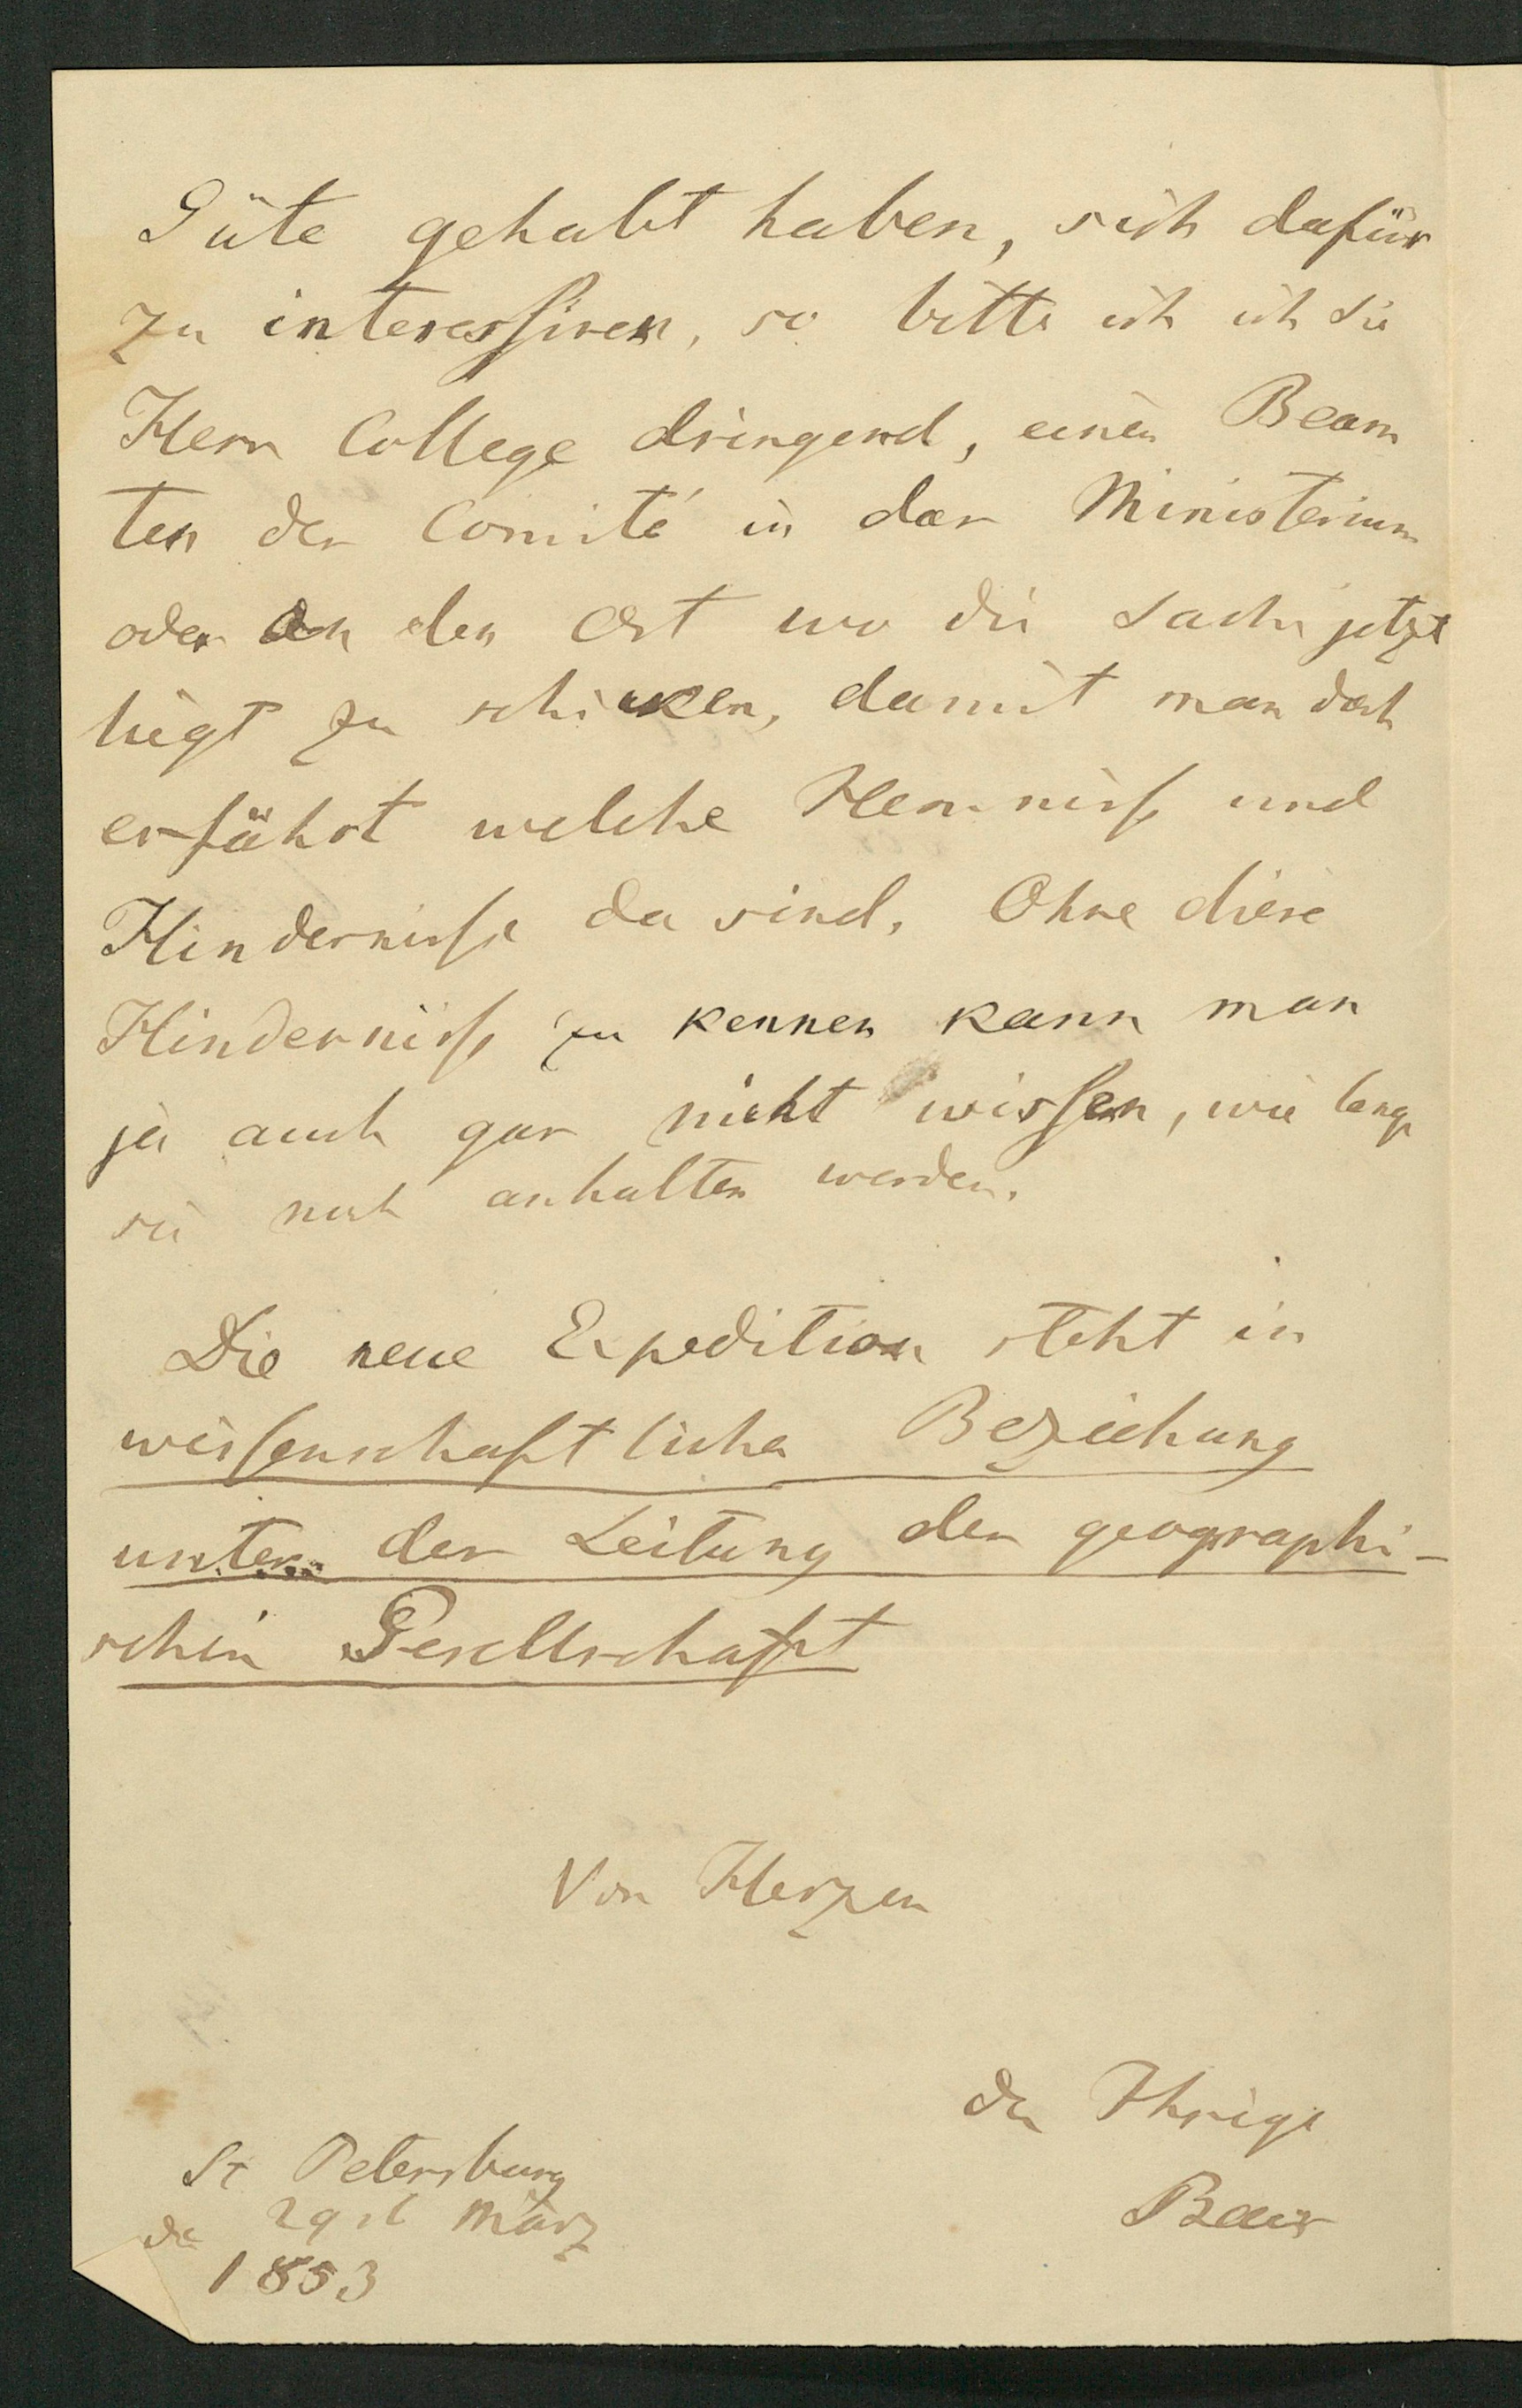 Güte gehabt haben, sich dafür
zu interessiren, so bitte ich ich Sie
Herr College dringend, einen Beam
ten der Comité in das Ministerium
oder an den Ort wo die Sache jetzt
liegt zu schicken, damit man doch
erfährt welche Hemnisse und
Hindernisse da sind. Ohne diese
Hindernisse zu kennen kann man
ja auch gar nicht wissen, wie lange
sie noch anhalten werden.
Die neue Expedition steht in
wissenschaftlicher Beziehung
unter der Leitung der geographi-
schen Gesellschaft
Von Herzen
der Ihrige
Baer
St Petersburg
d 29st März
1853